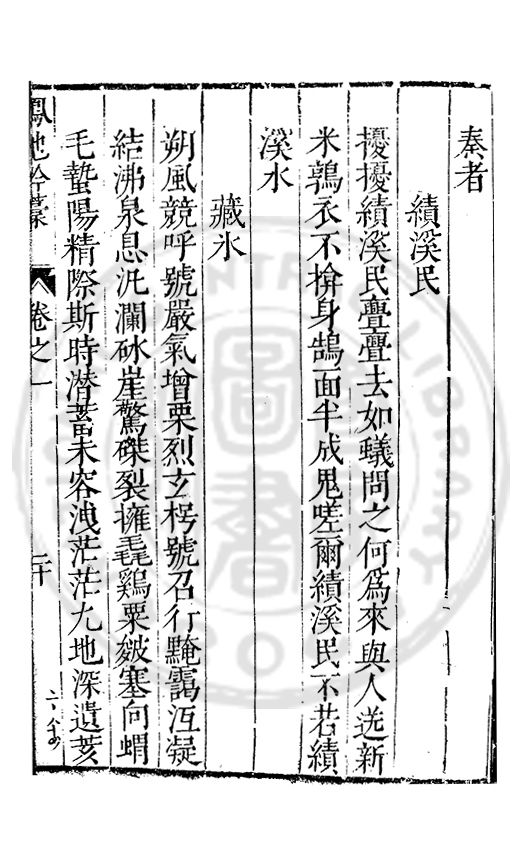 秦者
績溪民
擾擾績溪民疊疊去如蟻問之何爲來與人送新
米鶉衣不揜身鵠面半成鬼嗟爾績溪民不若績
溪水
藏氷
朔風競呼號嚴氣增栗烈玄枵號召行黤靄沍凝
結沸泉息汍瀾砅崖驚磔裂擁毳鷄粟皴塞向蝟
毛蟄陽精際斯時潜蓄未容洩茫茫九地深遺荄
鳳池吟藁
卷之一
二十